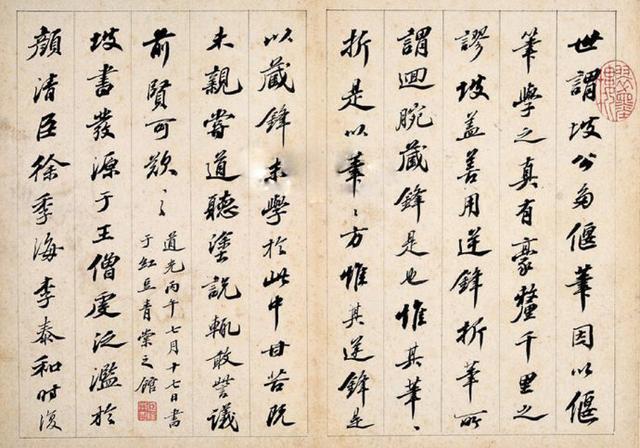 世謂坡公多偃筆因以偃
筆學之真有豪釐千里之
謬坡蓋善用逆鋒折筆所
謂迴腕藏鋒是也惟其筆〻
折是以筆〻方惟其逆鋒是
以藏鋒末學於此中甘苦既
未親嘗道聽塗説輒敢訾議
前賢可歎〻
道光丙午七月十七日書
于紅豆青棠之館
坡書發源于王僧虔泛濫於
顏清臣徐季海李泰和時復